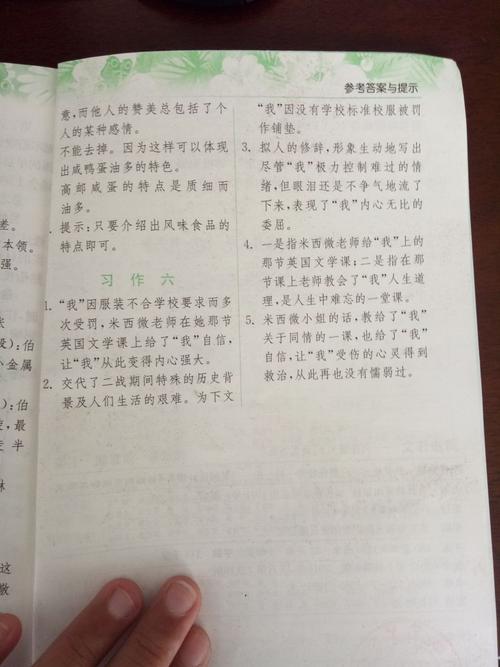 参考答案与提示
意,而他人的赞美总包括了个
人的某种感情。
不能去掉。因为这样可以体现
出咸鸭蛋油多的特色。
高邮咸蛋的特点是质细而
油多。
提示:只要介绍出风味食品的
特点即可。
习作六
1. “我”因服装不合学校要求而多
次受罚,米西微老师在她那节
英国文学课上给了“我”自信,
让“我”从此变得内心强大。
2. 交代了二战期间特殊的历史背
景及人们生活的艰难。为下文
“我”因没有学校标准校服被罚
作铺垫。
3. 拟人的修辞,形象生动地写出
尽管“我”极力控制难过的情
绪,但眼泪还是不争气地流了
下来,表现了“我”内心无比的
委屈。
4. 一是指米西微老师给“我”上的
那节英国文学课;二是指在那
节课上老师教会了“我”人生道
理,是人生中难忘的一堂课。
5. 米西微小姐的话,教给了“我”
关于同情的一课,也给了“我”
自信,让“我”受伤的心灵得到
救治,从此再也没有懦弱过。
差。
本领。
强。
):伯
金属
):伯
,最
半
这